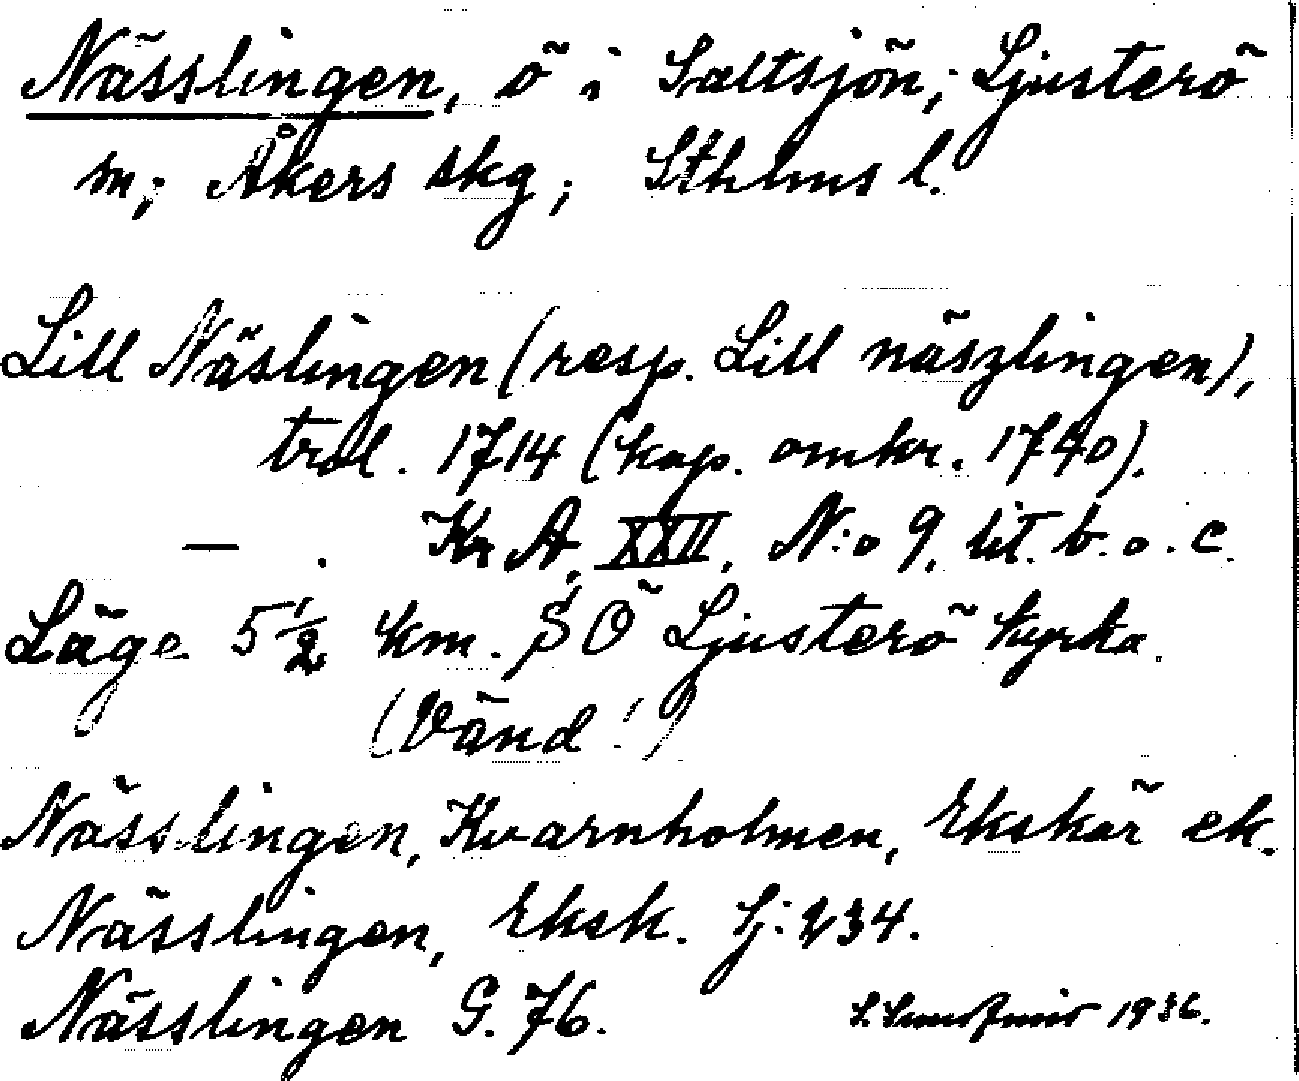 Nässlingen, ö i Saltsjön; Ljusterö
sn; Åkers skg; Sthlms l.
Lill Näslingen (resp. Lill näszlingen),
trol. 1714 (kop. omkr. 1740).
— . KrA, XXII, N:o 9. lit. b. o. c.
Läge 5½ km. SÖ Ljusterö kyrka.
(Vänd!)
Nässlingen, Kvarnholmen, Ekskär ek.
Nässlingen, Eksk. J:234.
Nässlingen G. 76.
1936.